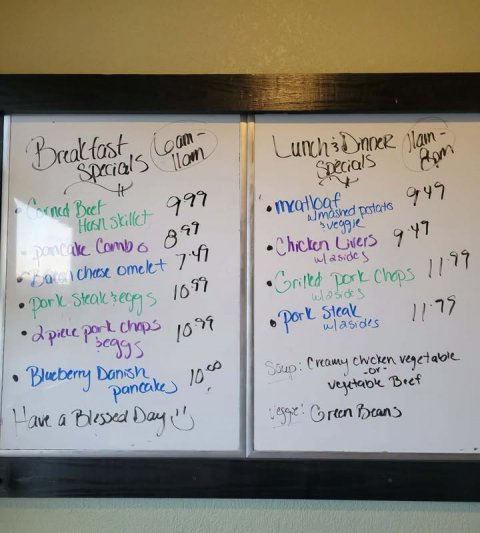 Breakfast Specials
6am-
11am
• Corned Beef
Hash Skillet 9.99
• pancake Combo 8.99
• Bacon cheese omelet 7.49
• pork steak & eggs 10.99
• 2 piece pork chops
& eggs 10.99
• Blueberry Danish
pancakes 10.00
Have a Blessed Day
Lunch & Dinner
Specials
11am-
8pm
• meatloaf 9.49
w/mashed potato
& veggie
• Chicken Livers 9.49
w/2 sides
• Grilled Pork Chops 11.99
w/2 sides
• pork Steak 11.79
w/2 sides
Soup: Creamy chicken vegetable
-or-
vegetable Beef
Veggie: Green Beans